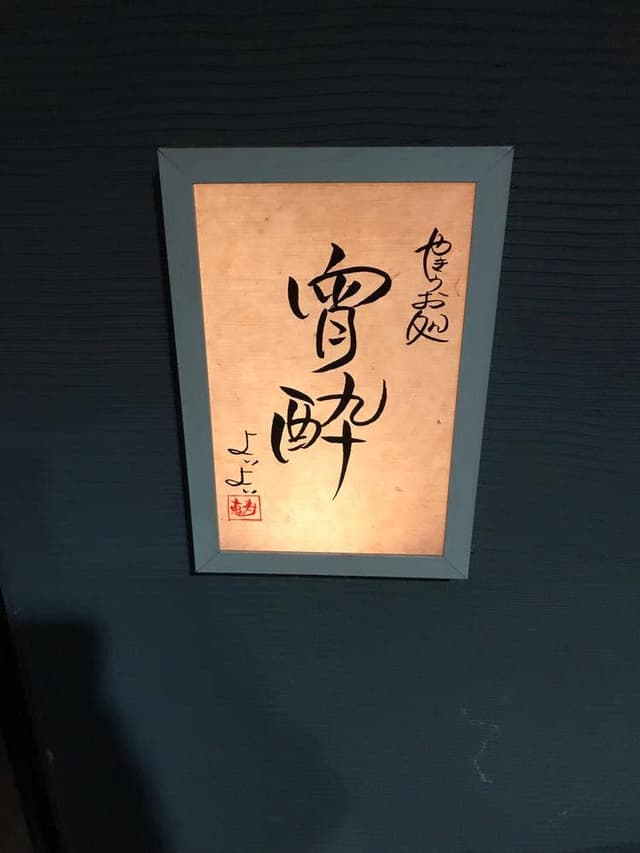 やきうお処
宵酔
よいよい